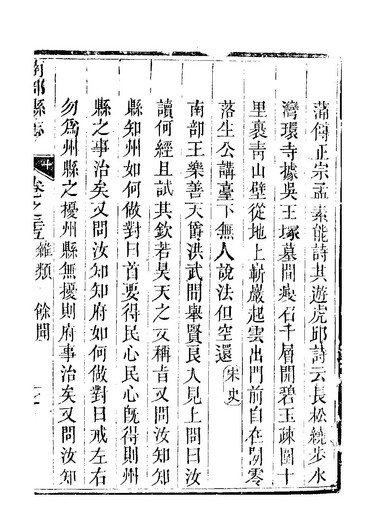 蒲傳正宗孟素能詩其遊虎邱詩云長松繞步水
灣環寺據吳王塚墓間爽石千層開碧玉疎圍十
里裹靑山壁從地上斬巖起雲出門前自在閒零
落生公講臺下無人說法但空還宋史
南部王樂善天爵洪武間舉賢良人見上問曰汝
讀何經且試其欽若昊天之文稱旨又問汝知知
縣知州如何做對曰首要得民心民心旣得則州
縣之事治矣又問汝知知府如何做對曰戒左右
勿爲州縣之擾州縣無擾則府事治矣又問汝知
南部縣志
卷之
雜類 餘聞